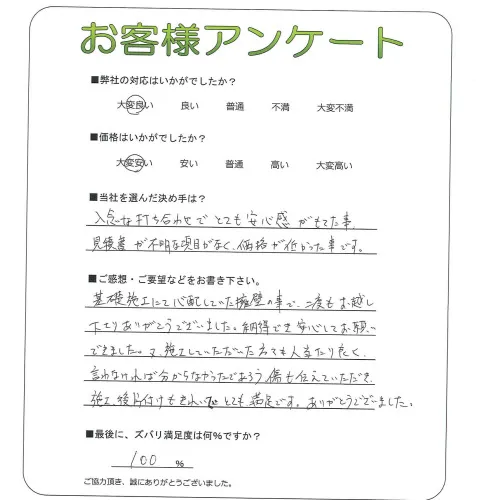 お客様アンケート
■弊社の対応はいかがでしたか?
大変良い 良い 普通 不満 大変不満
■価格はいかがでしたか?
大変安い 安い 普通 高い 大変高い
■当社を選んだ決め手は?
入念な打ち合わせで とても 安心感 がもてた事、
見積書 が不明な項目がなく、価格が低かった事です。
■ご感想・ご要望などをお書き下さい。
基礎施工にて心配していた擁壁の事で、二度もお越し
下さりありがとうございました。納得でき安心してお願い
できました。又、施工していただいた方々も人当たり良く、
言わなければ分からなかったであろう傷も伝えていただき、
施工後片付けもきれいでとても満足です。ありがとうございました。
■最後に、ズバリ満足度は何%ですか?
100 %
ご協力頂き、誠にありがとうございました。